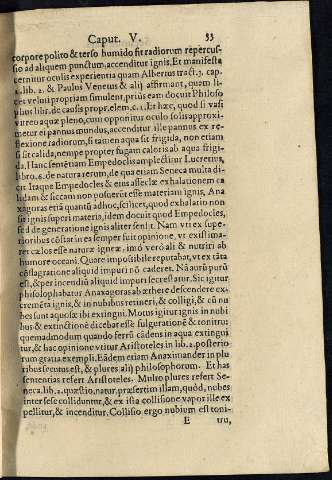 Caput. V. 33
corpore polito & terso humido fit radiorum repercus-
sio ad aliquem punctum, accenditur ignis. Et manifesta
cernitur oculis experientia quam Albertus tract. 3. cap.
2. lib. 2. & Paulus Venetus & alij affirmant, quam li-
cet velut propriam simulent, priùs eam docuit Philoso
phus libr. de causis propr. elem. c. 1. Et hæc, quod si vasi
vitreo aquæ pleno, cum opponitur oculo solis approxi-
metur ei pannus mundus, accenditur ille pannus ex re-
flexione radiorum, si tamen aqua sit frigida, non etiam
si sit calida, nempe propter fugam caloris ab aqua frigi-
da. Hanc sententiam Empedoclis amplectitur Lucretius,
libro. 6. de natura rerum, de qua etiam Seneca multa di-
cit Itaque Empedocles & eius asseclæ exhalationem ca
lidam & siccam non posuerūt esse materiam ignis. Ana
xagoras etiā quantū adhoc, scilicet, quod exhalatio non
sit ignis superi materia, idem docuit quod Empedocles,
sed de generatione ignis aliter sensit. Nam vt ex supe-
rioribus cōstat in ea semper fuit opinione, vt existima-
ret cælos esse naturæ igneæ, imò verò ali & nutriri ab
humore oceani. Quare impossibile reputabat, vt ex tāta
cōflagratione aliquid impuri nō caderet. Nā aurū purū
est, & per incendiū aliquid impuri secrestatur. Sic igitur
philosophabatur Anaxagoras ab æthere descendere ex-
cremēta ignis, & in nubibus retineri, & colligi, & cū nu
bes sunt aquosæ ibi extingui. Motus igitur ignis in nubi
bus & extinctionē dicebat esse fulgurationē & tonitru
quemadmodum quando ferrū cādens in aqua extingui
tur, & hac opinione vtitur Aristoteles in lib. 2. posterio
rum gratia exempli. Eādem etiam Anaximander in plu
ribus secutus est, & plures alij philosophorum. Et has
sententias refert Aristoteles. Multo plures refert Se-
neca. lib. 2. quæstio. natur. præsertim illam, quòd, nubes
inter sese colliduntur, & ex ista collisione vapor ille ex
pellitur, & incenditur. Collisio ergo nubium est toni-
E tru,